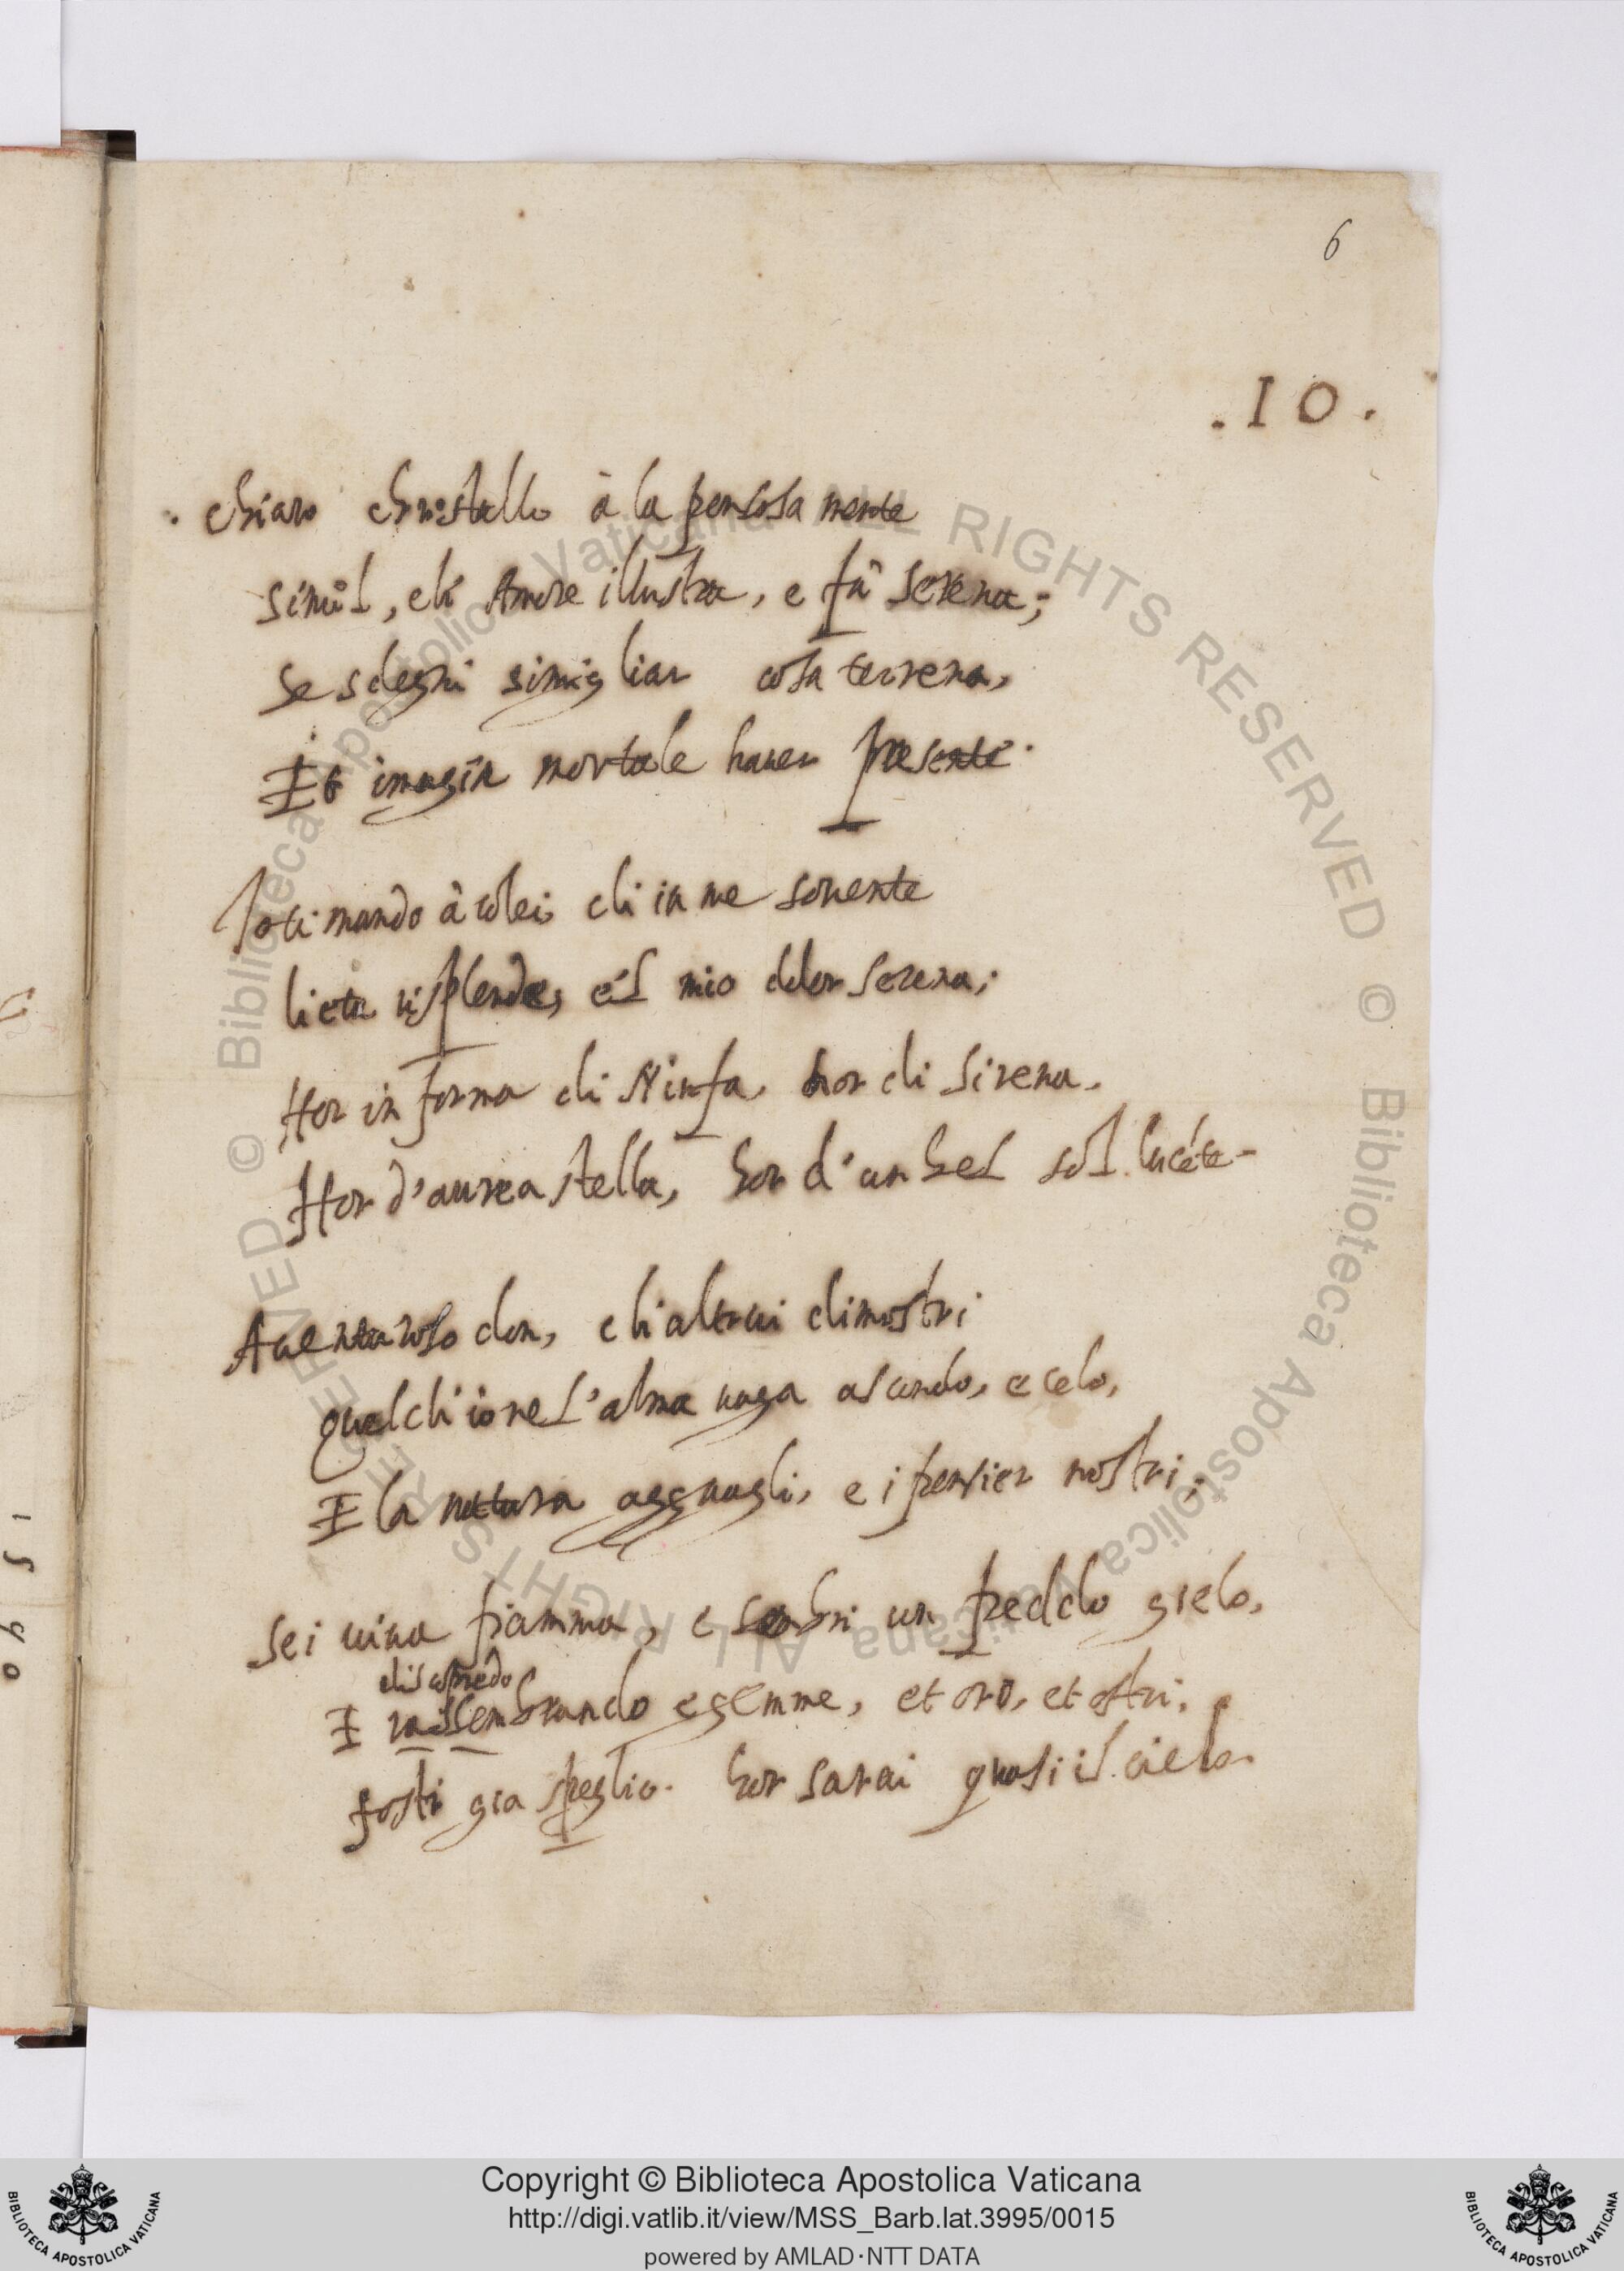 6
.10.
. Chiaro christallo à la pensosa mente
simil, ch' Amore illustra, e fà serena;
Se sdegni simigliar cosa terrena,
Et imagin mortale haver presente.
Io ti mando à colei ch' in me sovente
lieta risplende, e'l mio dolor serena;
Hor in forma di Ninfa, hor di Sirena,
Hor d'aurea stella, hor d'un bel sol lucéte.
Aventuroso don, ch'altrui dimostri
quel ch'io ne l'alma vaga ascondo, e celo,
E la natura agguagli, e i pensier nostri;
Sei viva fiamma, e sembri un freddo gielo,
discoprēdo
E rassembrando e gemme, et oro, et ostri,
fosti gia speglio. hor sarai quasi il cielo.
1 5 9 0
© Biblioteca Apostolica Vaticana ALL RIGHTS RESERVED © Biblioteca Apostolica Vaticana ALL RIGHTS RESERVED
BIBLIOTECA APOSTOLICA VATICANA
Copyright © Biblioteca Apostolica Vaticana
http://digi.vatlib.it/view/MSS_Barb.lat.3995/0015
powered by AMLAD·NTT DATA
BIBLIOTECA APOSTOLICA VATICANA